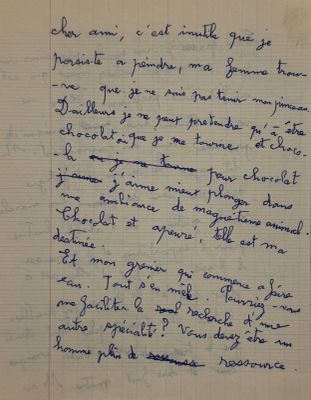 cher ami, c'est inutile que je
persiste à peindre, ma femme trou-
-ve que je ne sais pas tenir mon pinceau.
D'ailleurs je ne peut pretendre qu'à être
chocolat que je me tourne et choco-
-la pour chocolat
j'aime mieux plonger dans
une ambiance de magnétisme animal.
Chocolat et apeuré, telle est ma
destinée.
Et mon grenier qui commence a faire
eau. Tout s'en mele. Pourriez-vous
me faciliter la recherche d'une
autre spécialité? Vous devez être un
homme plein de ressource.